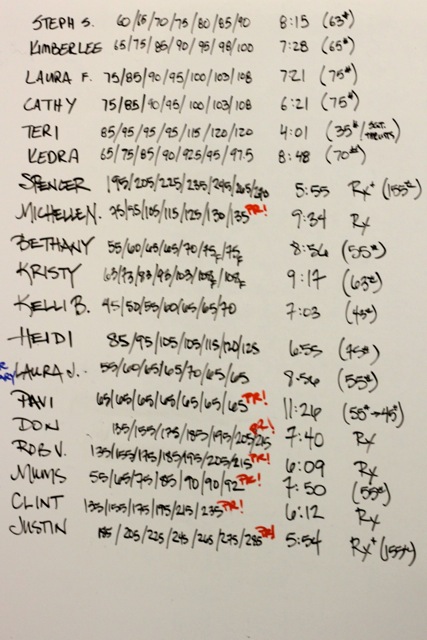 STEPH S. 60/65/70/75/80/85/90 8:15 (63#)
KIMBERLEE 65/75/85/90/95/98/100 7:28 (65#)
LAURA F. 75/85/90/95/100/103/108 7:21 (75#)
CATHY 75/85/90/95/100/103/108 6:21 (75#)
TERI 85/95/95/95/115/120/120 4:01 (35#/SGT.
KEDRA 65/75/85/90/92.5/95/97.5 8:48 (70#)
SPENCER 195/205/225/235/245/265/290 5:55 Rx+ (155#)
MICHELLE N. 75/55/105/115/125/130/135 PR! 9:34 Rx
BETHANY 55/60/65/65/70/75F/75F 8:56 (55#)
KRISTY 63/73/83/93/103/108F/108F 9:17 (63#)
KELLI B. 45/50/55/60/65/65/70 7:03 (45#)
HEIDI 85/95/105/105/115/120/125 6:55 (75#)
LAURA J. 55/60/65/65/70/65/65 8:56 (55#)
PAVI 65/65/65/65/65/65/65 PR! 11:26 (55#→45#)
DON 135/155/175/185/195/205/215 PR! 7:40 Rx
ROB V. 135/155/175/185/195/205/215 PR! 6:09 Rx
MUMS 55/65/75/85/90/90/92 PR! 7:50 (55#)
CLINT 135/155/175/195/215/235 PR! 6:12 Rx
JUSTIN 185/205/225/245/265/275/285 PR! 5:54 Rx+ (155#)